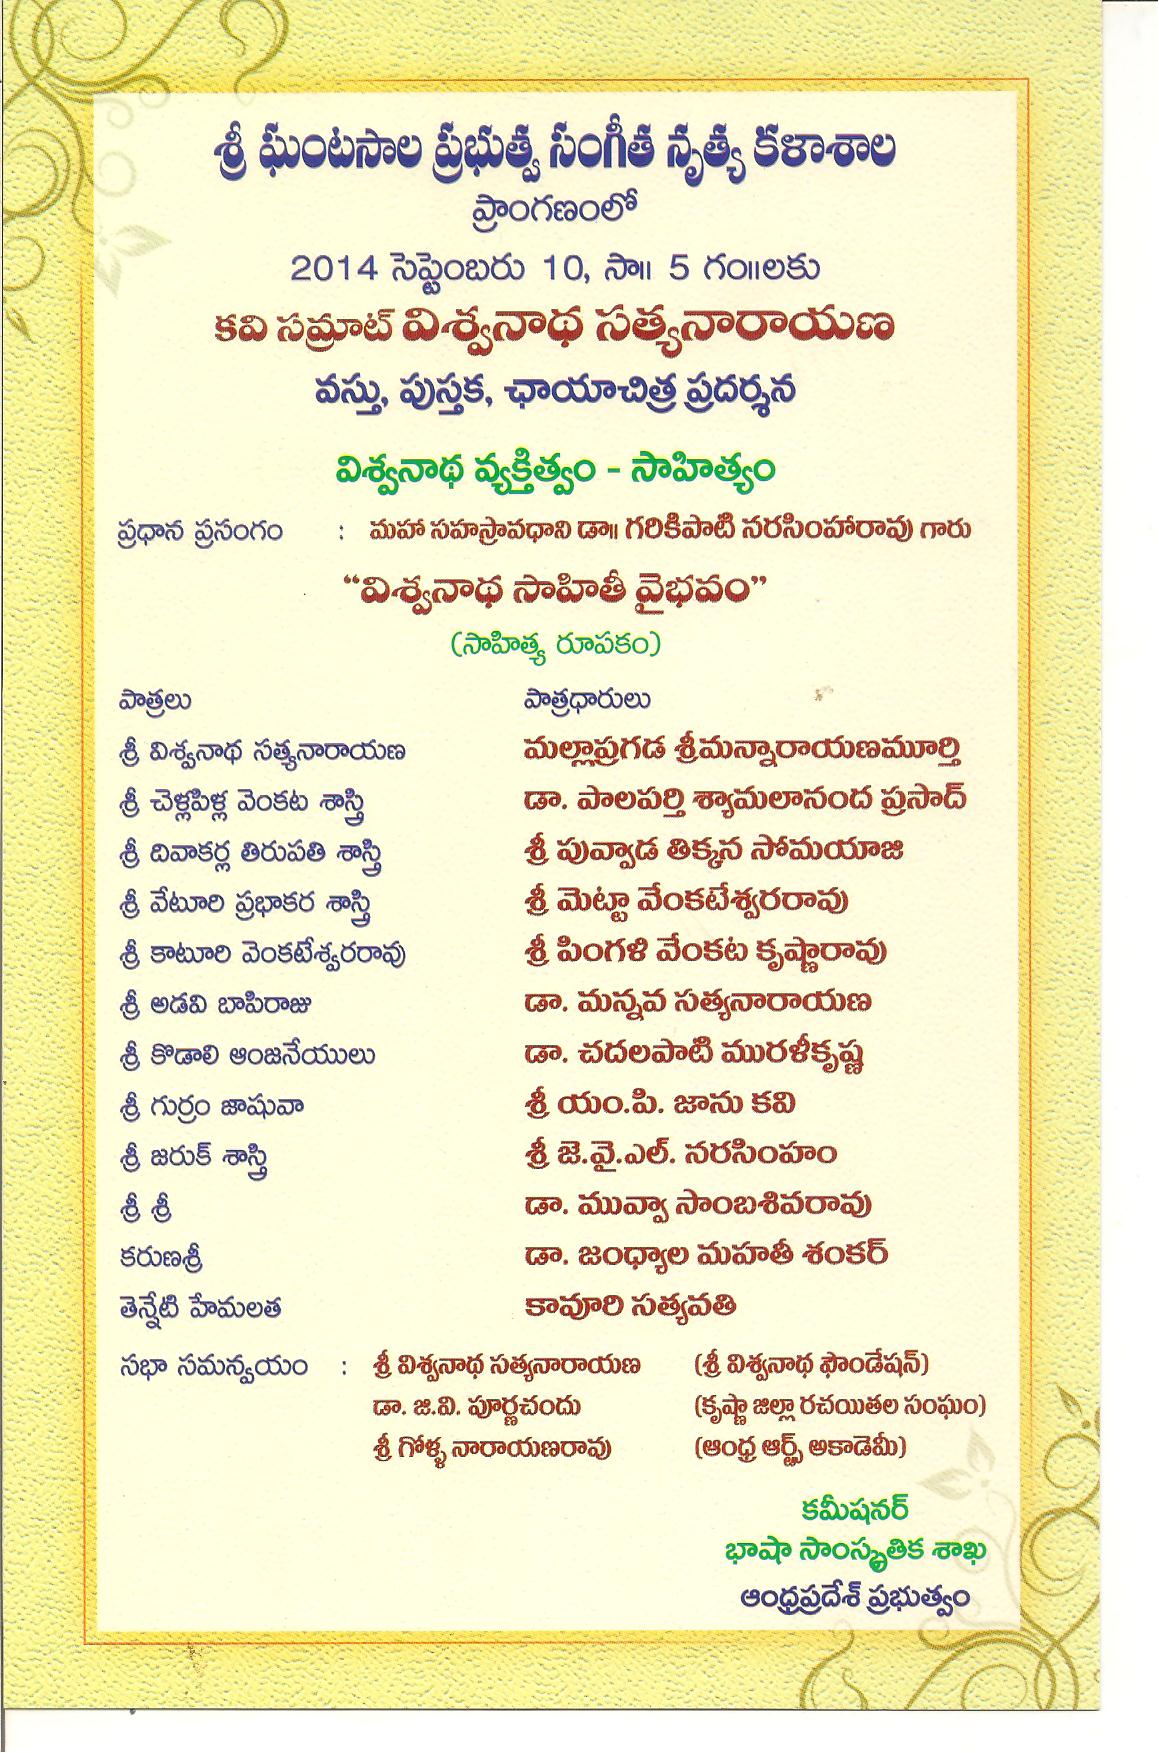 శ్రీ ఘంటసాల ప్రభుత్వ సంగీత నృత్య కళాశాల
ప్రాంగణంలో
2014 సెప్టెంబరు 10, సా॥ 5 గం॥లకు
కవి సమ్రాట్ విశ్వనాథ సత్యనారాయణ
వస్తు, పుస్తక, ఛాయాచిత్ర ప్రదర్శన
విశ్వనాథ వ్యక్తిత్వం - సాహిత్యం
ప్రధాన ప్రసంగం : మహా సహస్రావధాని డా॥ గరికిపాటి నరసింహారావు గారు
“విశ్వనాథ సాహితీ వైభవం”
(సాహిత్య రూపకం)
పాత్రలు పాత్రధారులు
శ్రీ విశ్వనాథ సత్యనారాయణ మల్లాప్రగడ శ్రీమన్నారాయణమూర్తి
శ్రీ చెళ్లపిళ్ల వెంకట శాస్త్రి డా. పాలపర్తి శ్యామలానంద ప్రసాద్
శ్రీ దివాకర్ల తిరుపతి శాస్త్రి శ్రీ పువ్వాడ తిక్కన సోమయాజి
శ్రీ వేటూరి ప్రభాకర శాస్త్రి శ్రీ మెట్టా వేంకటేశ్వరరావు
శ్రీ కాటూరి వెంకటేశ్వరరావు శ్రీ పింగళి వేంకట కృష్ణారావు
శ్రీ అడవి బాపిరాజు డా. మన్నవ సత్యనారాయణ
శ్రీ కొడాలి ఆంజనేయులు డా. చదలపాటి మురళీకృష్ణ
శ్రీ గుర్రం జాషువా శ్రీ యం.పి. జాను కవి
శ్రీ జరుక్ శాస్త్రి శ్రీ జె.వై.ఎల్. నరసింహం
శ్రీ శ్రీ డా. మువ్వా సాంబశివరావు
కరుణశ్రీ డా. జంధ్యాల మహతీ శంకర్
తెన్నేటి హేమలత కావూరి సత్యవతి
సభా సమన్వయం : శ్రీ విశ్వనాథ సత్యనారాయణ (శ్రీ విశ్వనాథ ఫౌండేషన్)
డా. జి.వి. పూర్ణచందు (కృష్ణా జిల్లా రచయితల సంఘం)
శ్రీ గోళ్ళ నారాయణరావు (ఆంధ్ర ఆర్ట్స్ అకాడెమీ)
కమీషనర్
భాషా సాంస్కృతిక శాఖ
ఆంధ్రప్రదేశ్ ప్రభుత్వం